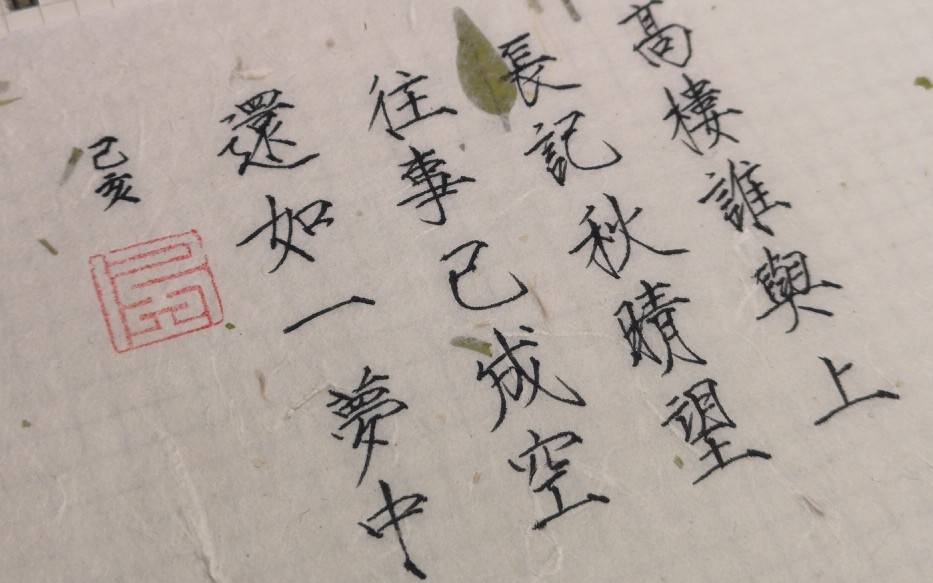 高樓誰與上
長記秋晴望
往事已成空
還如一夢中
己亥